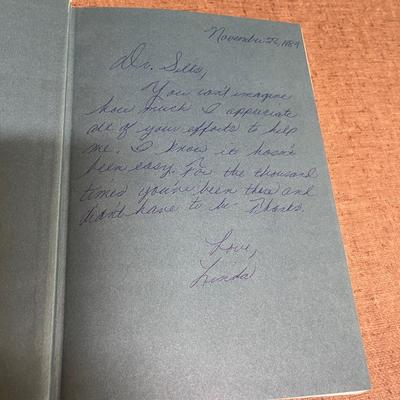 November 22, 1989
Dr. Sells,
You can't imagine
how much I appreciate
all of your efforts to help
me. I know its hasn't
been easy. For the thousand
times you've been there and
didn't have to be - Thanks.
Love,
Linda